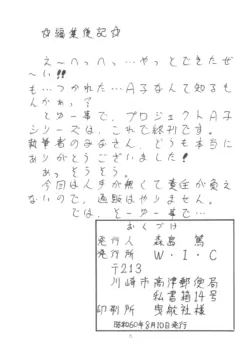 ☆編集後記☆
え〜へっへっ…やっとできたぜ
〜い!!
も…つかれた…A子なんて知るも
んかぁっ?
とゆー事で、プロジェクトA子
シリーズは、これで終刊です。
執筆者のみなさん、どうも本当に
ありがとうございました!
あっそうそう。
今回は人手が無くて責任が負え
ないので、通販はやりません。
では、とゆー事で…
おくづけ
発行人 森島 篤
発行所 W・I・C
〒213
川崎市高津郵便局
私書箱14号
印刷所 曳航社様
昭和60年8月10日発行